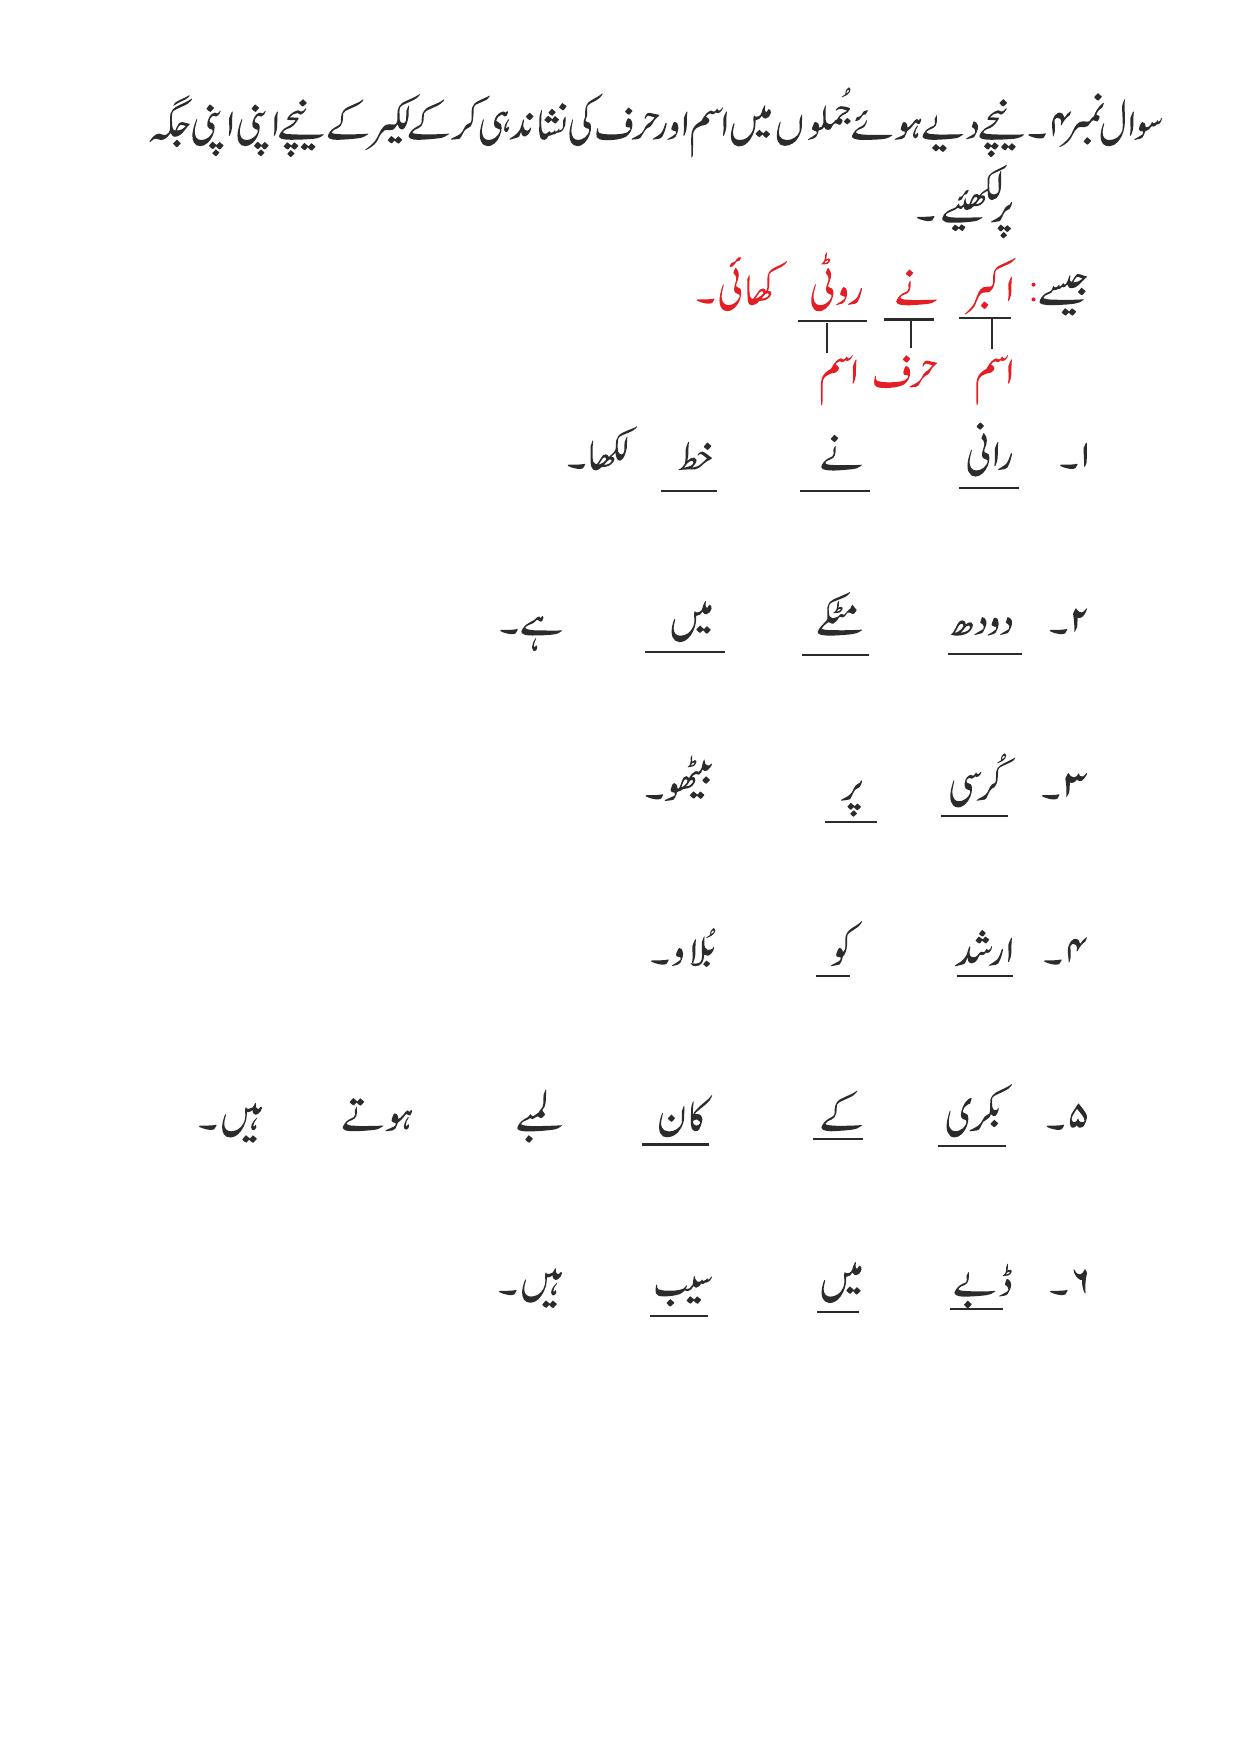 سوال نمبر۴۔ نیچے دیے ہوئے جُملوں میں اسم اور حرف کی نشاندہی کر کے لکیر کے نیچے اپنی اپنی جگہ
پر لکھئیے ۔
جیسے: اکبر نے روٹی کھائی۔
اسم حرف اسم
۱۔ رانی نے خط لکھا۔
۲۔ دودھ مٹکے میں ہے۔
۳۔ کُرسی پر بیٹھو۔
۴۔ ارشد کو بُلاو۔
۵۔ بکری کے کان لمبے ہوتے ہیں۔
۶۔ ڈبے میں سیب ہیں۔